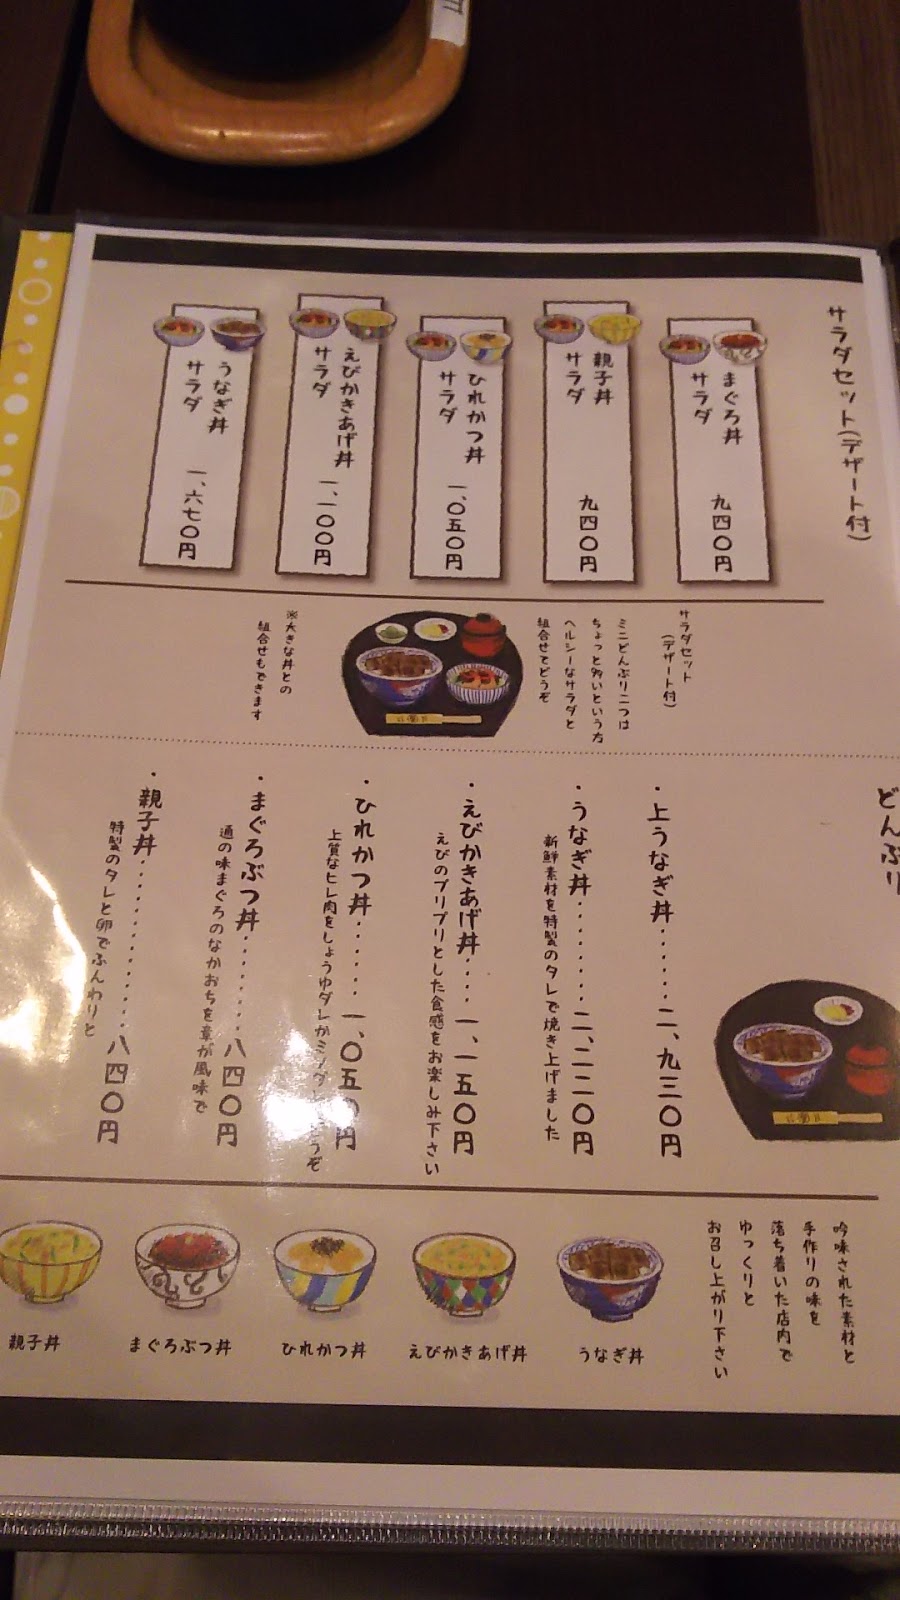 サラダセット(デザート付)
まぐろ丼
サラダ
九四〇円
親子丼
サラダ
九四〇円
ひれかつ丼
サラダ
一、〇五〇円
えびかきあげ丼
サラダ
一、一〇〇円
うなぎ丼
サラダ
一、六七〇円
サラダセット
(デザート付)
ミニどんぶり二つは
ちょっと多いという方
ヘルシーなサラダと
組合せでどうぞ
※大きな丼との
組合せもできます
どんぶり
・上うなぎ丼・・・・・二、九三〇円
・うなぎ丼・・・・・・二、二二〇円
新鮮素材を特製のタレで焼き上げました
・えびかきあげ丼・・・・一、一五〇円
えびのプリプリとした食感をお楽しみ下さい
・ひれかつ丼・・・・・・一、〇五〇円
上質なヒレ肉をしょうゆダレか
・まぐろぶつ丼・・・・・・・八四〇円
通の味まぐろのなかおちを童が風味で
・親子丼・・・・・・・・・・・八四〇円
特製のタレと卵でふんわりと
吟味された素材と
手作りの味を
落ち着いた店内で
ゆっくりと
お召し上がり下さい
うなぎ丼
えびかきあげ丼
ひれかつ丼
まぐろぶつ丼
親子丼